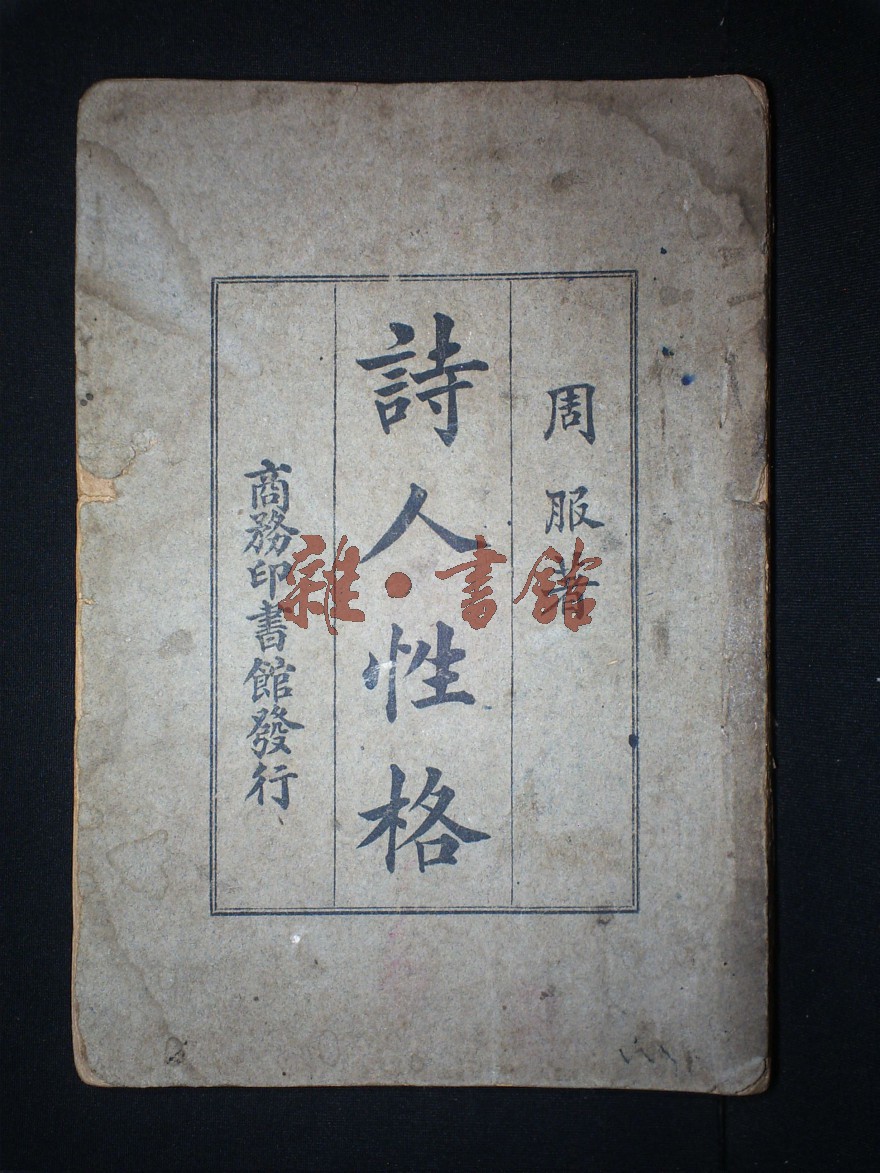 周服著
詩人性格
商務印書館發行
雜·書館